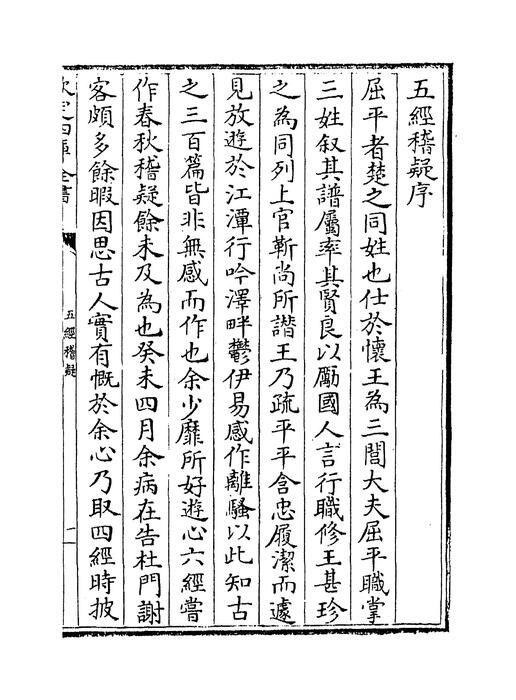 五經稽疑序
屈平者楚之同姓也仕於懷王為三閭大夫屈平職掌
三姓叙其譜屬率其賢良以勵國人言行職修王甚珍
之為同列上官靳尚所譖王乃疏平平含忠履潔而遽
見放遊於江潭行吟澤畔鬱伊易感作離騷以此知古
之三百篇皆非無感而作也余少靡所好遊心六經嘗
作春秋稽疑餘未及為也癸未四月余病在告杜門謝
客頗多餘暇因思古人實有慨於余心乃取四經時披
欽定四庫全書
五經稽疑
一